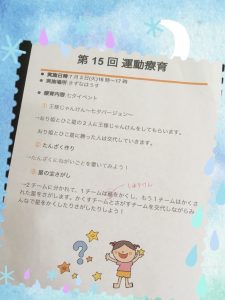 第 15 回 運動療育
● 実施日時 7月5日(火)16時〜17時
● 実施場所 きずなはうす
● 療育内容 七夕イベント
① 王様じゃんけん〜七夕バージョン〜
→おり姫とひこ星の2人に王様じゃんけんをしてもらいます。
おり姫とひこ星に勝った人は交代していきます。
② たんざく作り
→たんざくにねがいごとを書いてみよう!
③ 星の宝さがし
→2チームに分かれて、1チームは箱をかくし、もう1チームはかくさ
れた星をさがします。かくすチームとさがすチームを交代しながらみ
んなで星をかくしたりさがしたりしよう!
?